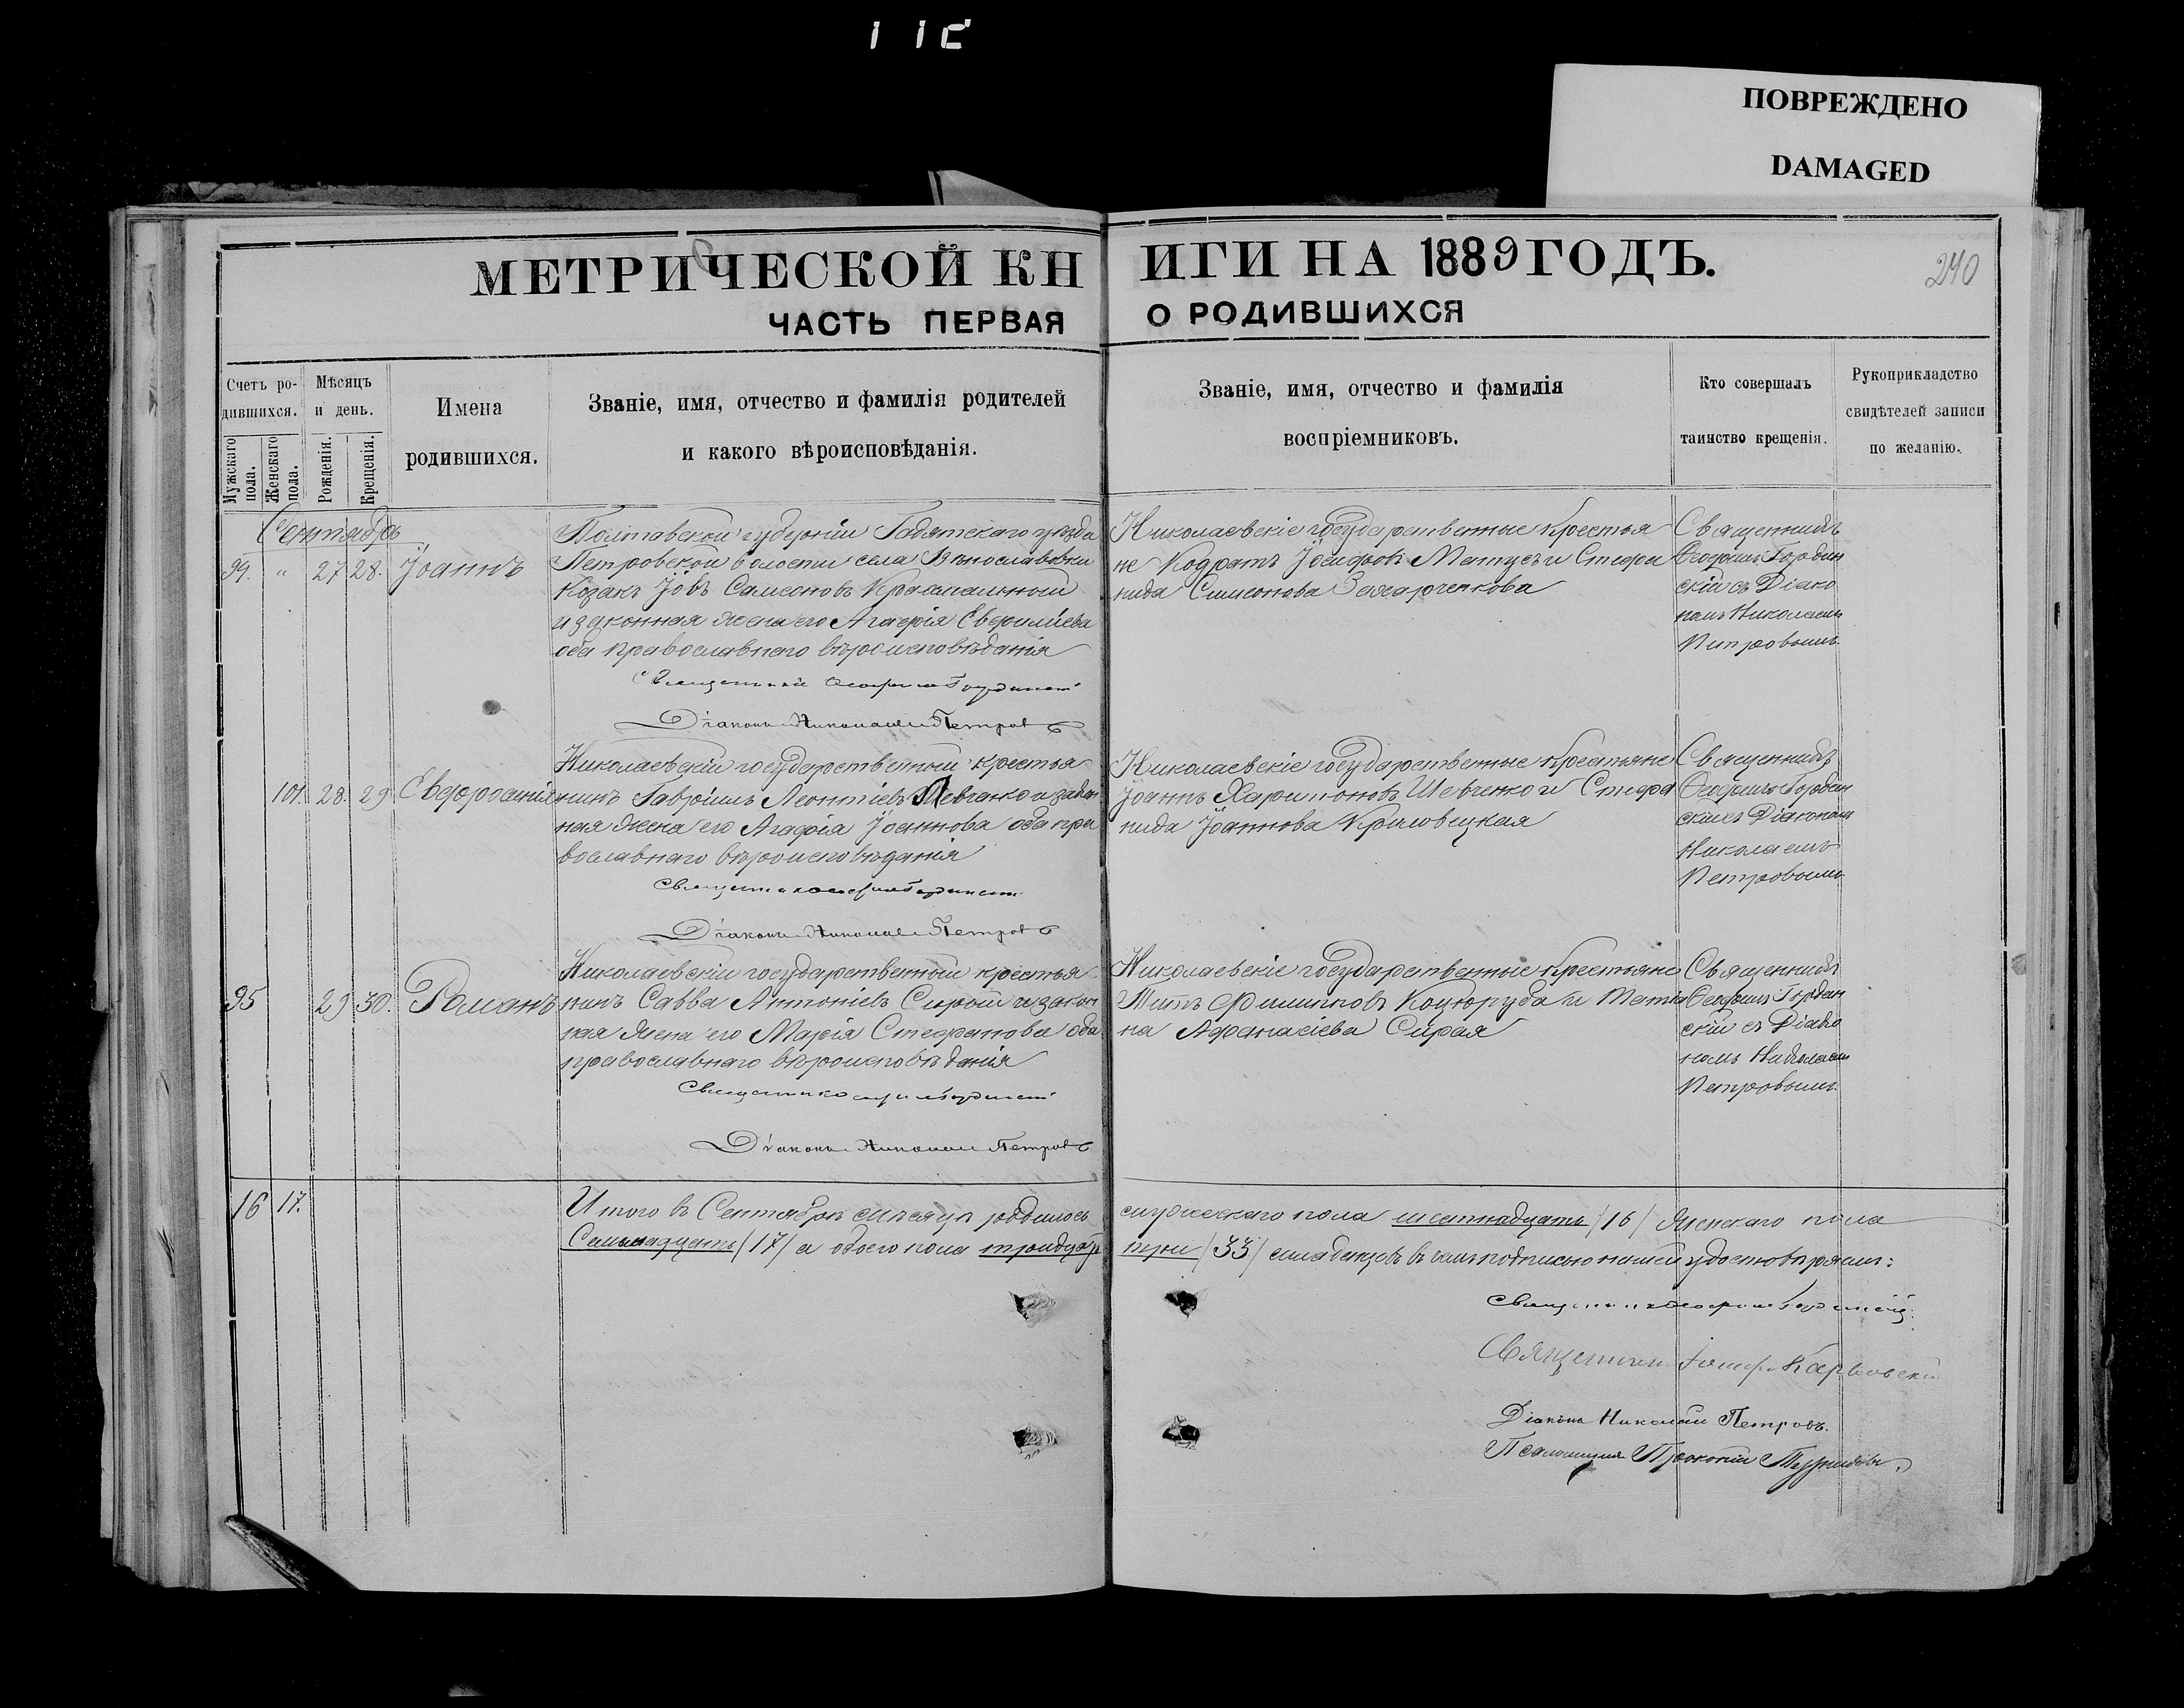 ПОВРЕЖДЕНО
DAMAGED
МЕТРИЧЕСКОЙ КНИГИ НА 1889 ГОДЪ.
240
ЧАСТЬ ПЕРВАЯ О РОДИВШИХСЯ
Счетъ ро-
дившихся.
Мужскаго пола.
Женскаго пола.
Мѣсяцъ
и день.
Рожденія.
Крещенія.
Имена
родившихся.
Званіе, имя, отчество и фамилія родителей
и какого вѣроисповѣданія.
Званіе, имя, отчество и фамилія
воспріемниковъ.
Кто совершалъ
таинство крещенія.
Рукоприкладство
свидѣтелей записи
по желанію.
Сентябрь
94. " 27 28. Іоаннъ
Полтавской губерніи Гадятскаго уѣзда
Петровской волости села
Козакъ Іовъ Самсоновъ
и законная жена его Агафія
оба православнаго вѣроисповѣданія
Діаконъ Николай Петровъ
Николаевскіе государственные крестья
не Кодратъ Іосифовъ Матусъ и Стефа
нида Симеонова Захарченкова
Священникъ
Ѳеофилъ Гордин
скій съ Діако
номъ Николаемъ
Петровымъ.
101. 28. 29. Евфросинія
Николаевскій государственный крестья
нинъ Гавріилъ Леонтіевъ Левченко и закон
ная жена его Агафія Іоаннова оба пра
вославнаго вѣроисповѣданія
Діаконъ Николай Петровъ
Николаевскіе государственные крестьяне
Іоаннъ Харитоновъ Шевченко и Стефа
нида Іоаннова Крыловецкая
Священникъ
Ѳеофилъ Гордин
скій съ Діакономъ
Николаемъ
Петровымъ.
95 29 30. Романъ
Николаевскій государственный крестья
нинъ Савва Антоніевъ Сирой и закон
ная жена его Марія Стефанова оба
православнаго вѣроисповѣданія
Діаконъ Николай Петровъ
Николаевскіе государственные крестьяне
Титъ Филиповъ Коцюруба и Татіа
на Афанасіева Сирая
Священникъ
Ѳеофилъ Гордин
скій съ Діако
номъ Николаемъ
Петровымъ.
16 17.
Итого въ Сентябрѣ мѣсяцѣ родилось мужескаго пола шестнадцать /16/ женскаго пола
Семьнадцать /17/ а обоего пола тридцать три /33/ младенцовъ въ чемъ подписью нашей удостовѣряемъ:
Священникъ Іосифъ
Діаконъ Николай Петровъ.
Псаломщикъ Прокопій